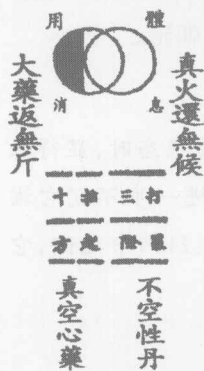 體用
息消
真火還無候
大藥返無斤
打
三際
抽起
十方
不空性丹
真空心藥